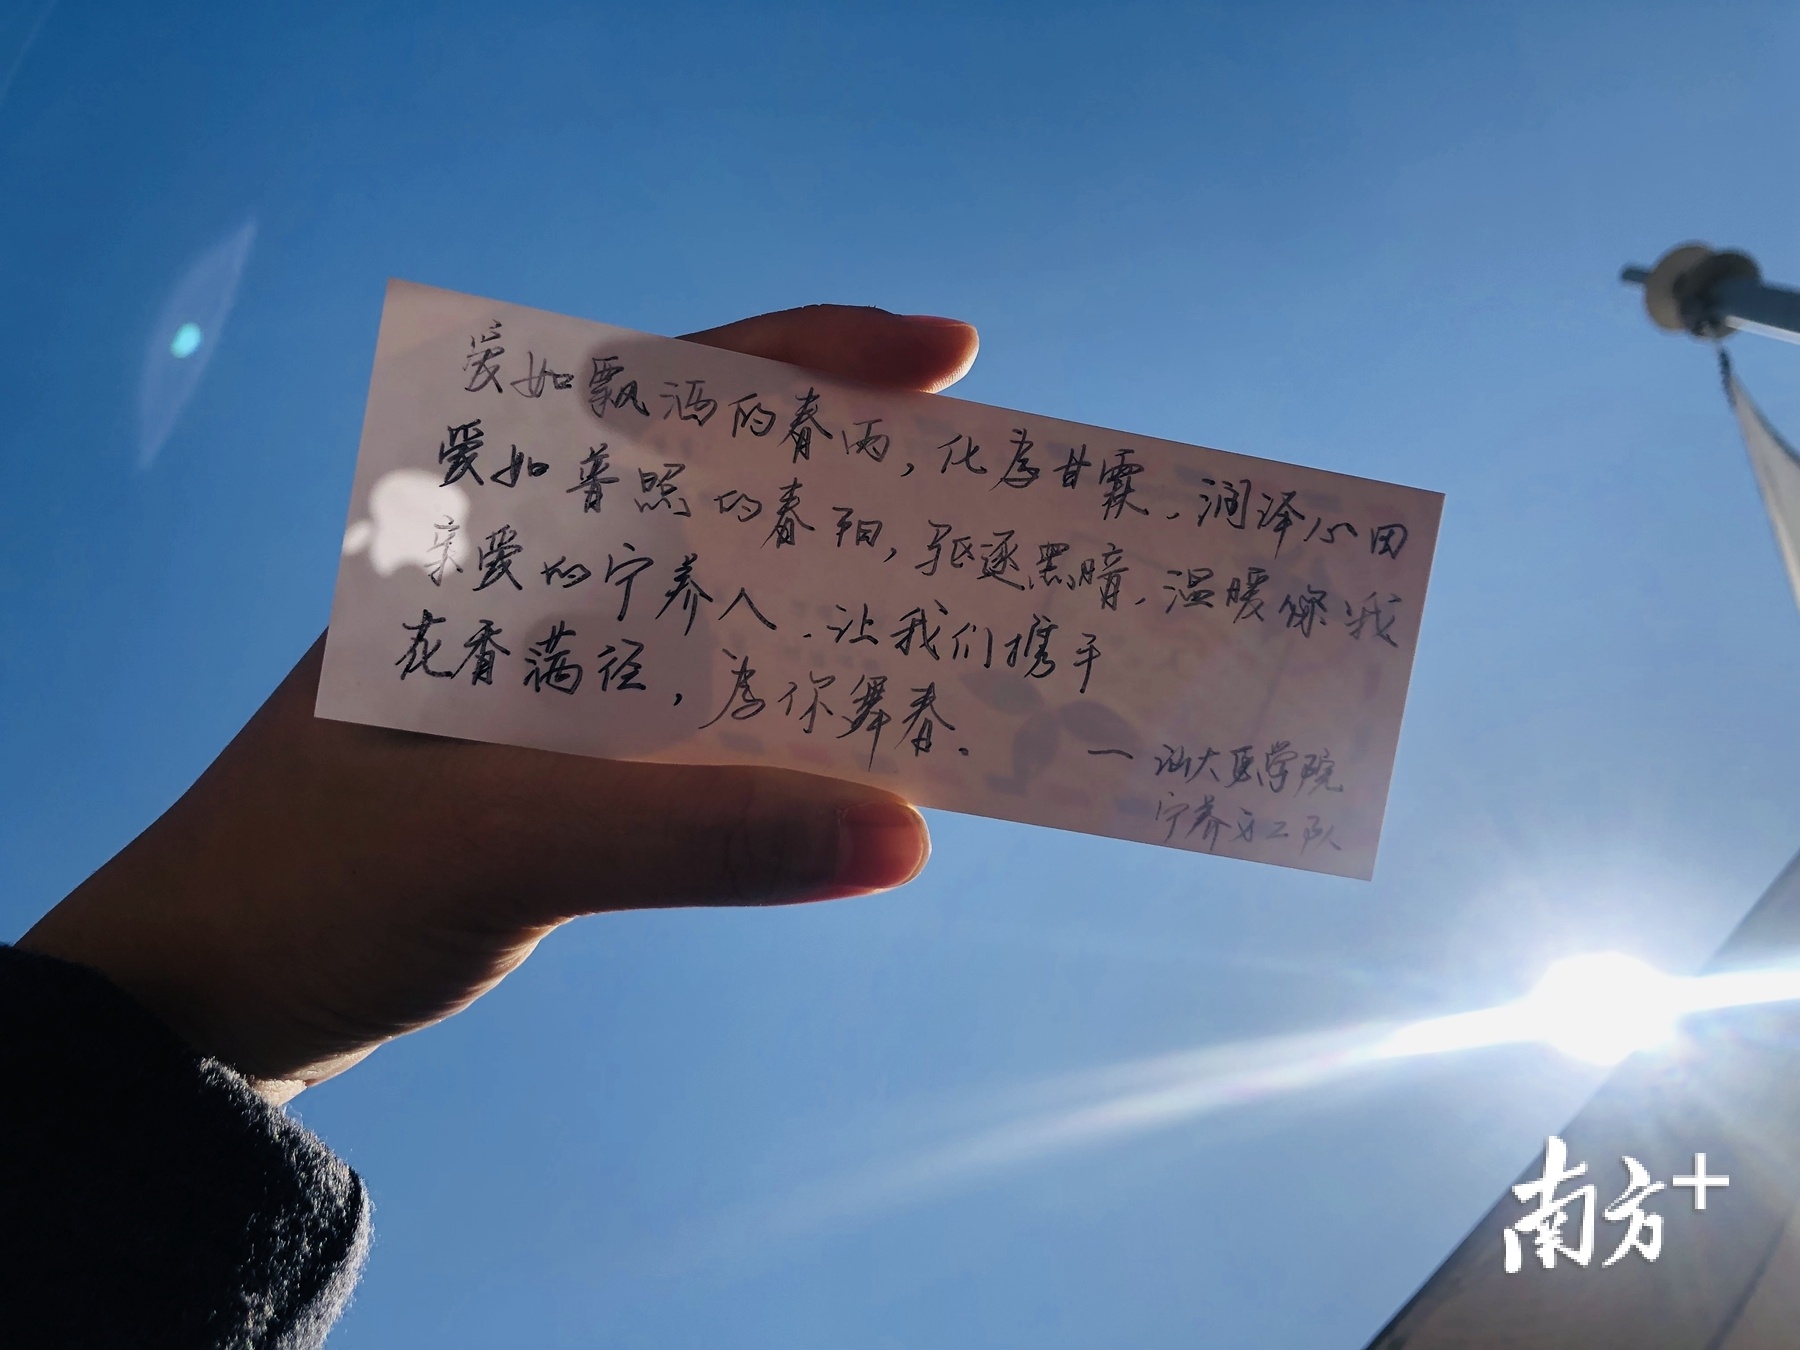 爱如飘洒的春雨，化为甘霖，润泽心田
爱如普照的春阳，驱逐黑暗，温暖你我
亲爱的宁养人，让我们携手
花香满径，为你舞春。
—汕大医学院
宁养义工队
南方+